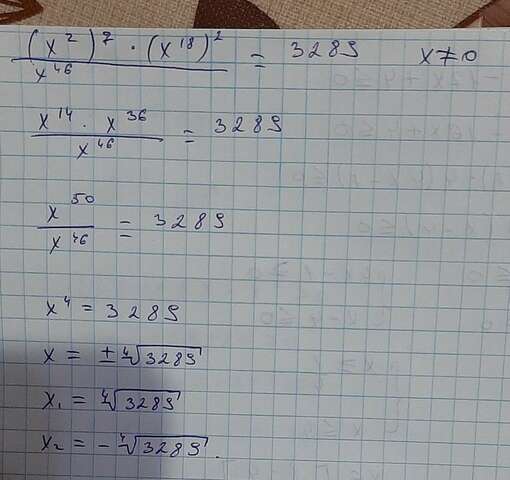 (x²)⁷ · (x¹⁸)² / x⁴⁶ = 3289 x ≠ 0
x¹⁴ · x³⁶ / x⁴⁶ = 3289
x⁵⁰ / x⁴⁶ = 3289
x⁴ = 3289
x = ± ⁴√3289
x₁ = ⁴√3289
x₂ = - ⁴√3289.